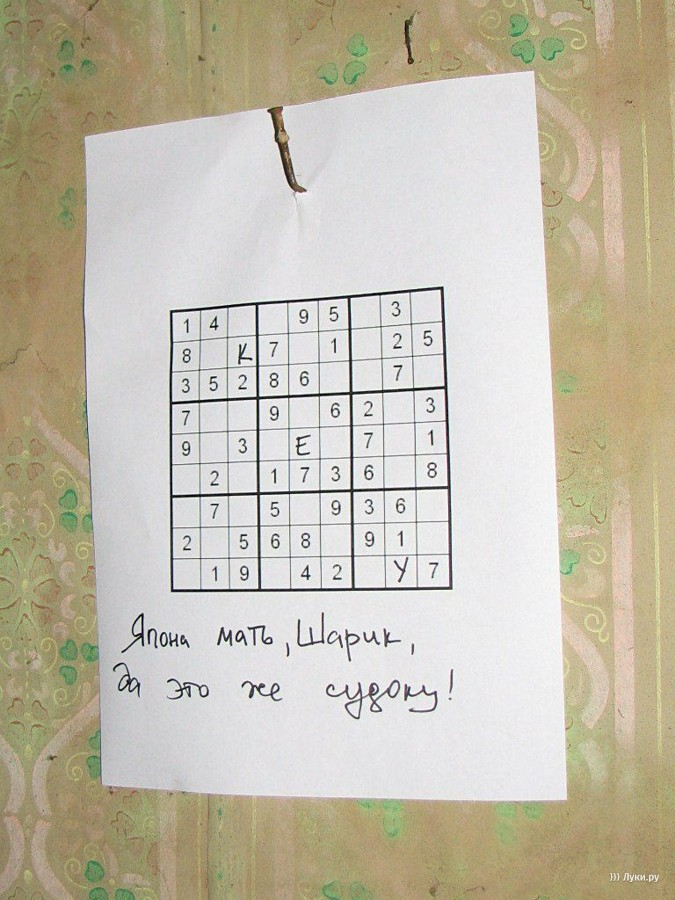 1 4 9 5 3
8 К 7 1 2 5
3 5 2 8 6 7
7 9 6 2 3
9 3 Е 7 1
2 1 7 3 6 8
7 5 9 3 6
2 5 6 8 9 1
1 9 4 2 У 7
Япона мать, Шарик,
да это же судоку!
))) Луки.ру